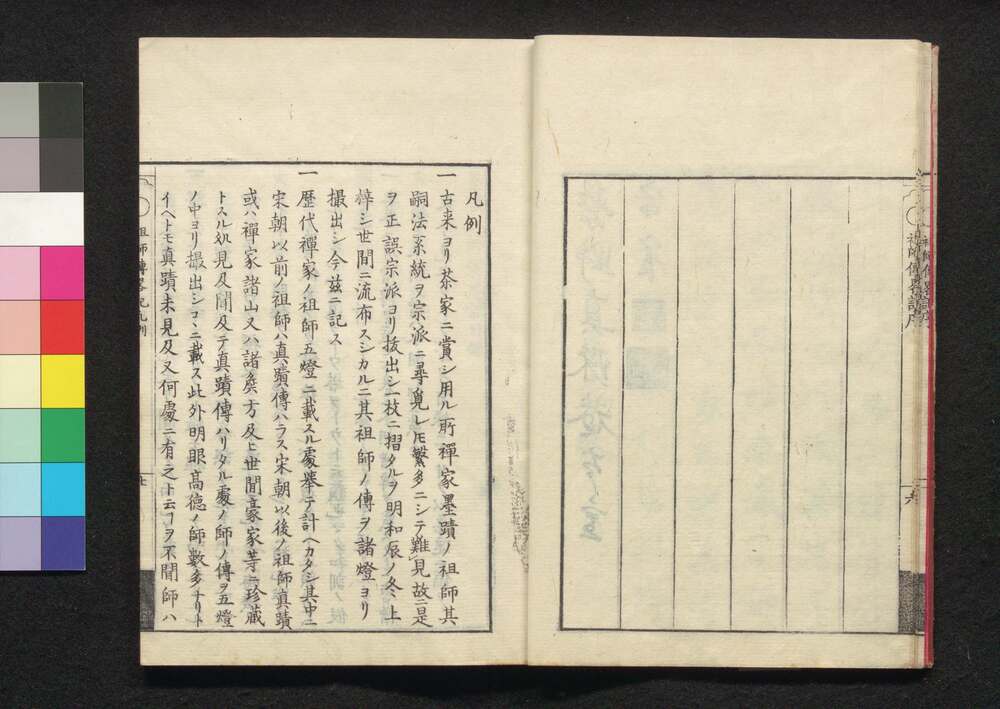 祖師傳畧譜序
六
凡例
一古来ヨリ茶家ニ賞シ用ル所禅家墨蹟ノ祖師其
嗣法系統ヲ宗派ニ尋覓レ𪜈繁多ニシテ難見故ニ是
ヲ正誤宗派ヨリ抜出シ一枚ニ摺タルヲ明和辰ノ冬上
梓シ世間ニ流布スシカルニ其祖師ノ傳ヲ諸燈ヨリ
撮出シ今茲ニ記ス
一歴代禪家ノ祖師五燈ニ載スル處舉テ計ヘカタシ其中ニ
宋朝以前ノ祖師ハ真蹟傳ハラス宋朝以後ノ祖師真蹟
或ハ禪家諸山又ハ諸矦方及ヒ世間豪家等ニ珍藏
トスル処見及聞及テ真蹟傳ハリタル處ノ師ノ傳ヲ五燈
ノ中ヨリ撮出シコヽニ載ス此外明眼高德ノ師數多ナリト
イヘトモ真蹟未見及又何處ニ有之ト云ヿヲ不聞師ハ
祖師傳畧 凡例
七